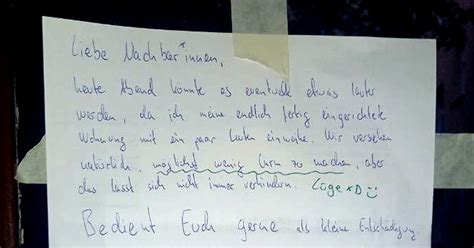 Liebe Nachbar*innen,
heute Abend könnte es eventuell etwas lauter
werden, da ich meine endlich fertig eingerichtete
Wohnung mit ein paar Leuten einweihe. Wir versuchen
natürlich, möglichst wenig Lärm zu machen, aber
das lässt sich nicht immer verhindern. Lüge xD
Bedient Euch gerne als kleine Entschädigung